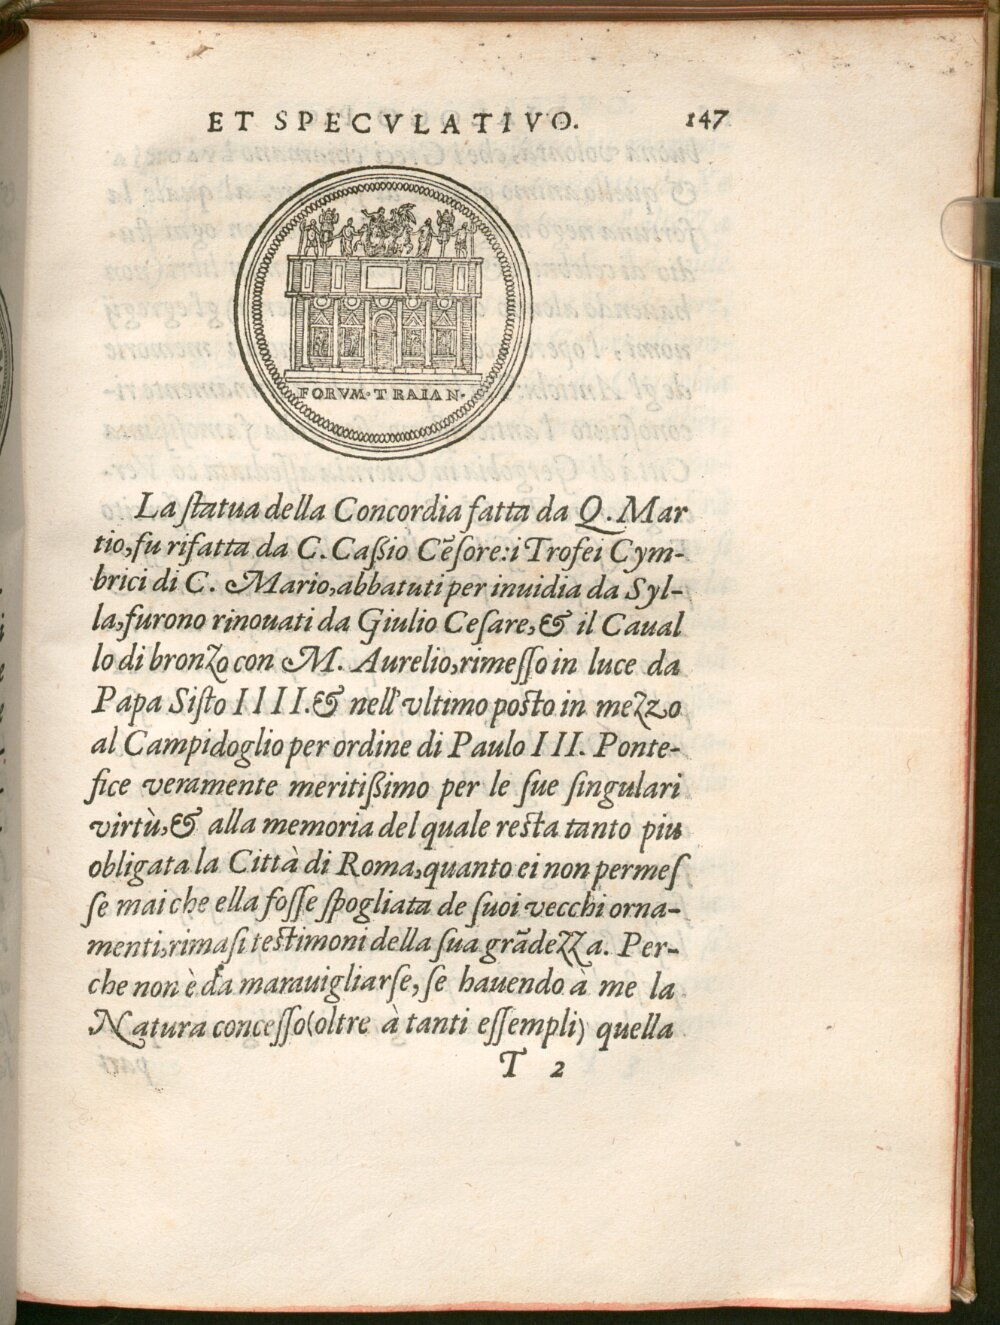 ET SPECVLATIVO. 147
FORVM·TRAIAN·
La ſtatua della Concordia fatta da Q. Mar
tio, fu rifatta da C. Caßio Cẽſore: i Trofei Cym-
brici di C. Mario, abbatuti per inuidia da Syl-
la, furono rinouati da Giulio Ceſare, & il Caual
lo di bronzo con M. Aurelio, rimeſſo in luce da
Papa Siſto IIII. & nell'vltimo poſto in mezzo
al Campidoglio per ordine di Paulo III. Ponte-
fice veramente meritißimo per le ſue ſingulari
virtù, & alla memoria del quale reſta tanto piu
obligata la Città di Roma, quanto ei non permeſ
ſe mai che ella foſſe ſpogliata de ſuoi vecchi orna-
menti, rimaſi teſtimoni della ſua grãdezza. Per-
che non è da marauigliarſe, ſe hauendo à me la
Natura conceſſo (oltre à tanti eſſempli) quella
T 2